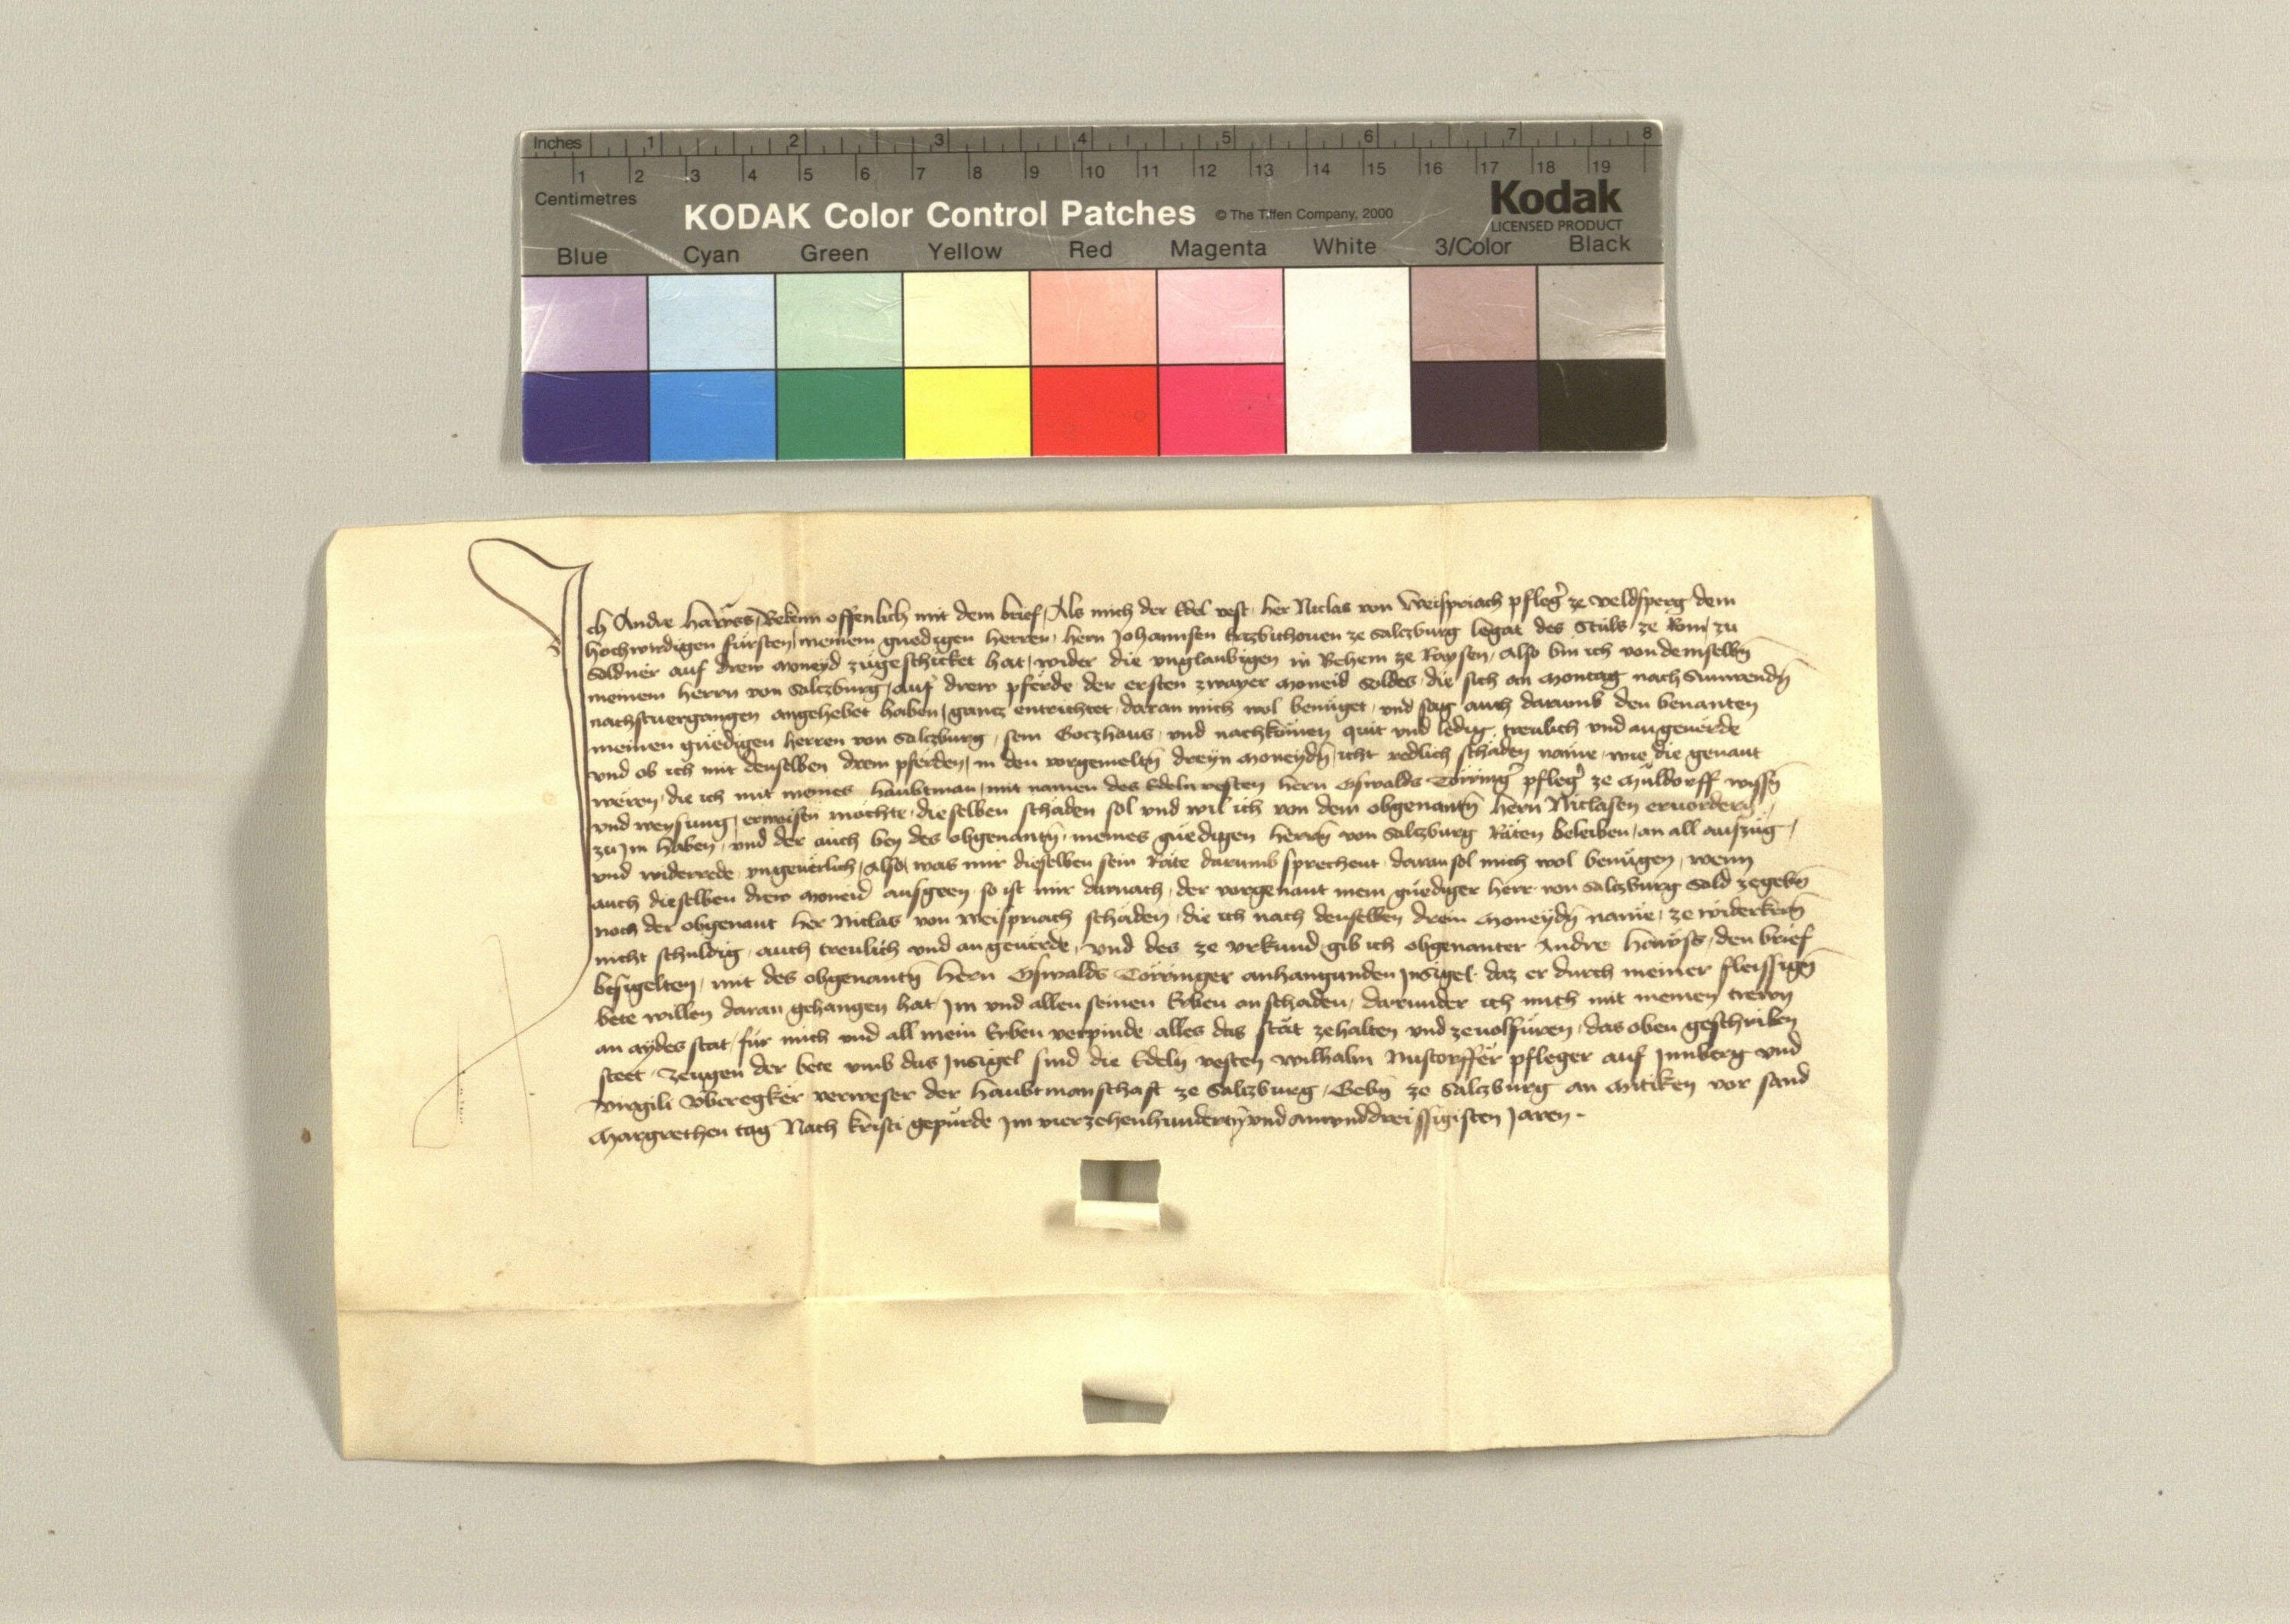 Inches 1 2 3 4 5 6 7 8
1 2 3 4 5 6 7 8 9 10 11 12 13 14 15 16 17 18 19
Centimetres
KODAK Color Control Patches © The Tiffen Company, 2000 Kodak
LICENSED PRODUCT
Blue Cyan Green Yellow Red Magenta White 3/Color Black
Ich Andre Bekenn offenlich mit dem brief, Als mich der Edel vest her Niclas von Weispriach pfleg̃ ze veldsperg dem
hochwirdigen fürsten, meinem gnedigen herren, hern Johannsen Erczbischouen ze Salczburg legat des Stuls ze Rom, zu
Soldner auf drew moneyd zugeschicket hat, wider die vnglaubigen in Behem ze Raysen, Also bin ich von demselbñ
meinem herrn von Salczburg, auf drew pferde der ersten zwayer moneid Soldes die sich an Montag nach Sunwendñ
nachstuergangen angehebet haben, gancz entrichtet daran mich wol benuget, vnd sag auch darumb den benanten
meinen gnedigen herren von Salczburg, sein Goczhaus vnd nachkomen quit vnd ledig, treulich vnd angeuerde
vnd ob ich mit denselben drein pferden, in den vorgemeltñ dreyn moneydñ, icht redlich schaden näme, wie die genant
weren, die ich mit meines haubtman, mit namen des Edeln vesten hern Oswalds Törring̃ pfleg̃ ze Müldorff wissñ
vnd weysung, erweisen möchte, dieselben schäden sol vnd wil ich von dem obgenantñ hern Niclasen eruordern,
zu Im haben, vnd der auch bey des obgenantñ, meines gnedigen herrñ von Salczburg Räten beleiben, an all aufzüg,
vnd widerrede vngeuerlich, Also, was mir dieselben sein Räte darumb sprechent daran sol mich wol benügen, wenn
auch dieselben drew moneid ausgeen, so ist mir darnach, der vorgenant mein gnediger herr von Salczburg Sold zegebñ
noch der obgenant her Niclas von Weispriach schäden, die ich nach denselben drein Moneydñ näme, ze widerkerñ
nicht schuldig, auch treulich vnd angeuerde, Vnd des ze vrkund gib ich obgenanter Andre den brief
besigelten, mit des obgenantñ hern Oswalds Törringer anhangunden Insigel, daz er durch meiner fleissigñ
bete willen daran gehangen hat, Im vnd allen seinen Erben anschaden, darunder ich mich mit meinen trewn
an aydes stat, für mich vnd all mein Erben verpinde, alles das stät zehalten vnd zeuolfüren, das oben geschriben
steet, Zeugen der bete vmb das Insigel sind die Edeln vesten Wilhalm Nustorffer pfleger auf Innberg vnd
Virgili Vberegker verweser der haubtmanschaft ze Salczburg, Gebñ ze Salczburg an Mitiken vor sand
Margrethen tag Nach kristi gepürde Im vierzehenhundertñ vnd ainunddreissigisten Jaren.